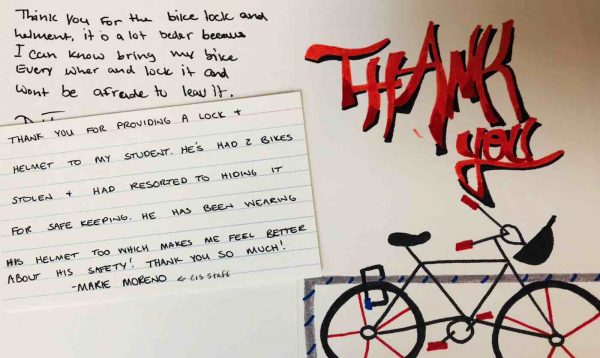 Think you for the bike lock and
helment, it is a lot beder because
I can know bring my bike
Every wher and lock it and
wont be afraide to leav it.
THANK YOU FOR PROVIDING A LOCK +
HELMET TO MY STUDENT. HE'S HAD 2 BIKES
STOLEN + HAD RESORTED TO HIDING IT
FOR SAFE KEEPING. HE HAS BEEN WEARING
HIS HELMET TOO WHICH MAKES ME FEEL BETTER
ABOUT HIS SAFETY! THANK YOU SO MUCH!
-MARIE MORENO ← CIS Staff
THANK
you